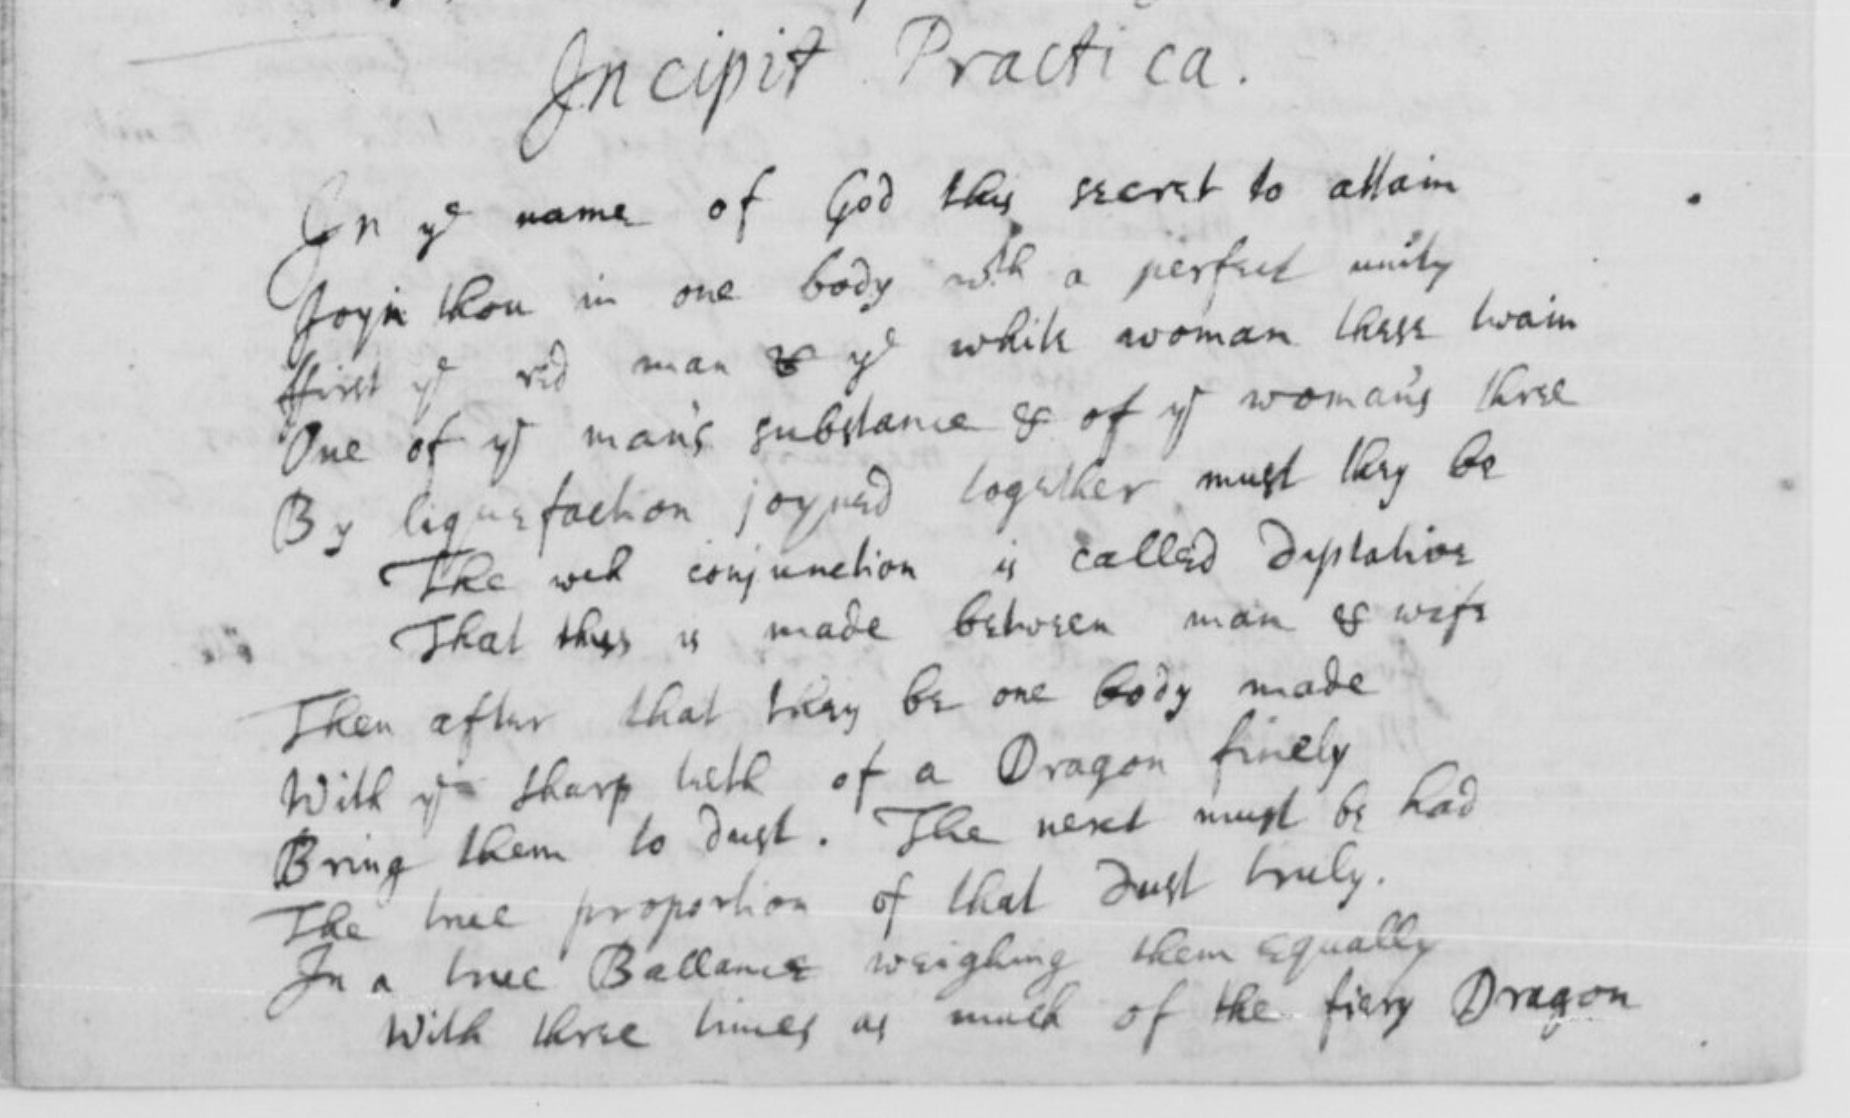 Incipit Practica.
In ye name of God this secret to attain
Joyn thou in one body wth a perfect unity
ffirst ye red man & ye white woman these twain
One of ye man's substance & of ye woman's three
By liquefaction joyned together must they be
The wch conjunction is called Diptative
That thus is made between man & wife
Then after that they be one body made
With ye sharp teeth of a Dragon finely
Bring them to dust. The next must be had
The true proportion of that dust truly.
In a true Ballance weighing them equally
With three times as much of the fiery Dragon